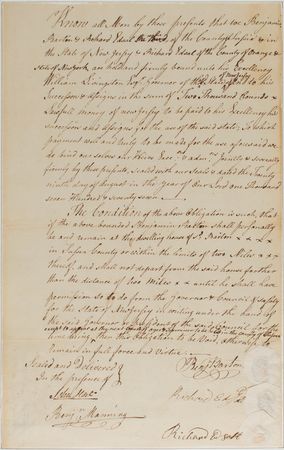 Know all Men by these presents that we Benjamin
Barton & Richard Edsal the third of the County of Sussex & in
the State of New Jersey & Richard Edsal of the County of Orange &
State of New york, are held and firmly bound unto his Excellency
William Livingston Esqr Governor of the State of New Jersey his
Successors & assigns in the sum of Two Thousand Pounds
Lawfull money of new jersey to be paid to his Excellency his
successors and assigns for the use of the said state; To which
payment well and truly to be made for the use aforesaid we
do bind our selves our Heirs Exors & admrs Jointly & severally
firmly by these presents, sealed with our Seals & dated the Twenty
ninth day of August in the year of our Lord one Thousand
seven Hundred & seventy seven
The Condition of the above Obligation is such, that
if the above bounded Benjamin Barton shall personally
be and remain at the dwelling house of
in Sussex County or within the Limits of two Miles
thereof, and shall not depart from the said house farther
than the distance of two miles until he shall have
permission so to do from the Governor & Council of Safety
for the State of New jersey in writing under the hand of
the said Governor or President of the said Council for the
time
then this Obligation to be Void, otherwise to
remain in full force and virtue
Sealed and Delivered
In the presence of
Benjn Manning
Benjn Barton
Richard Edsal
Richard Edsall